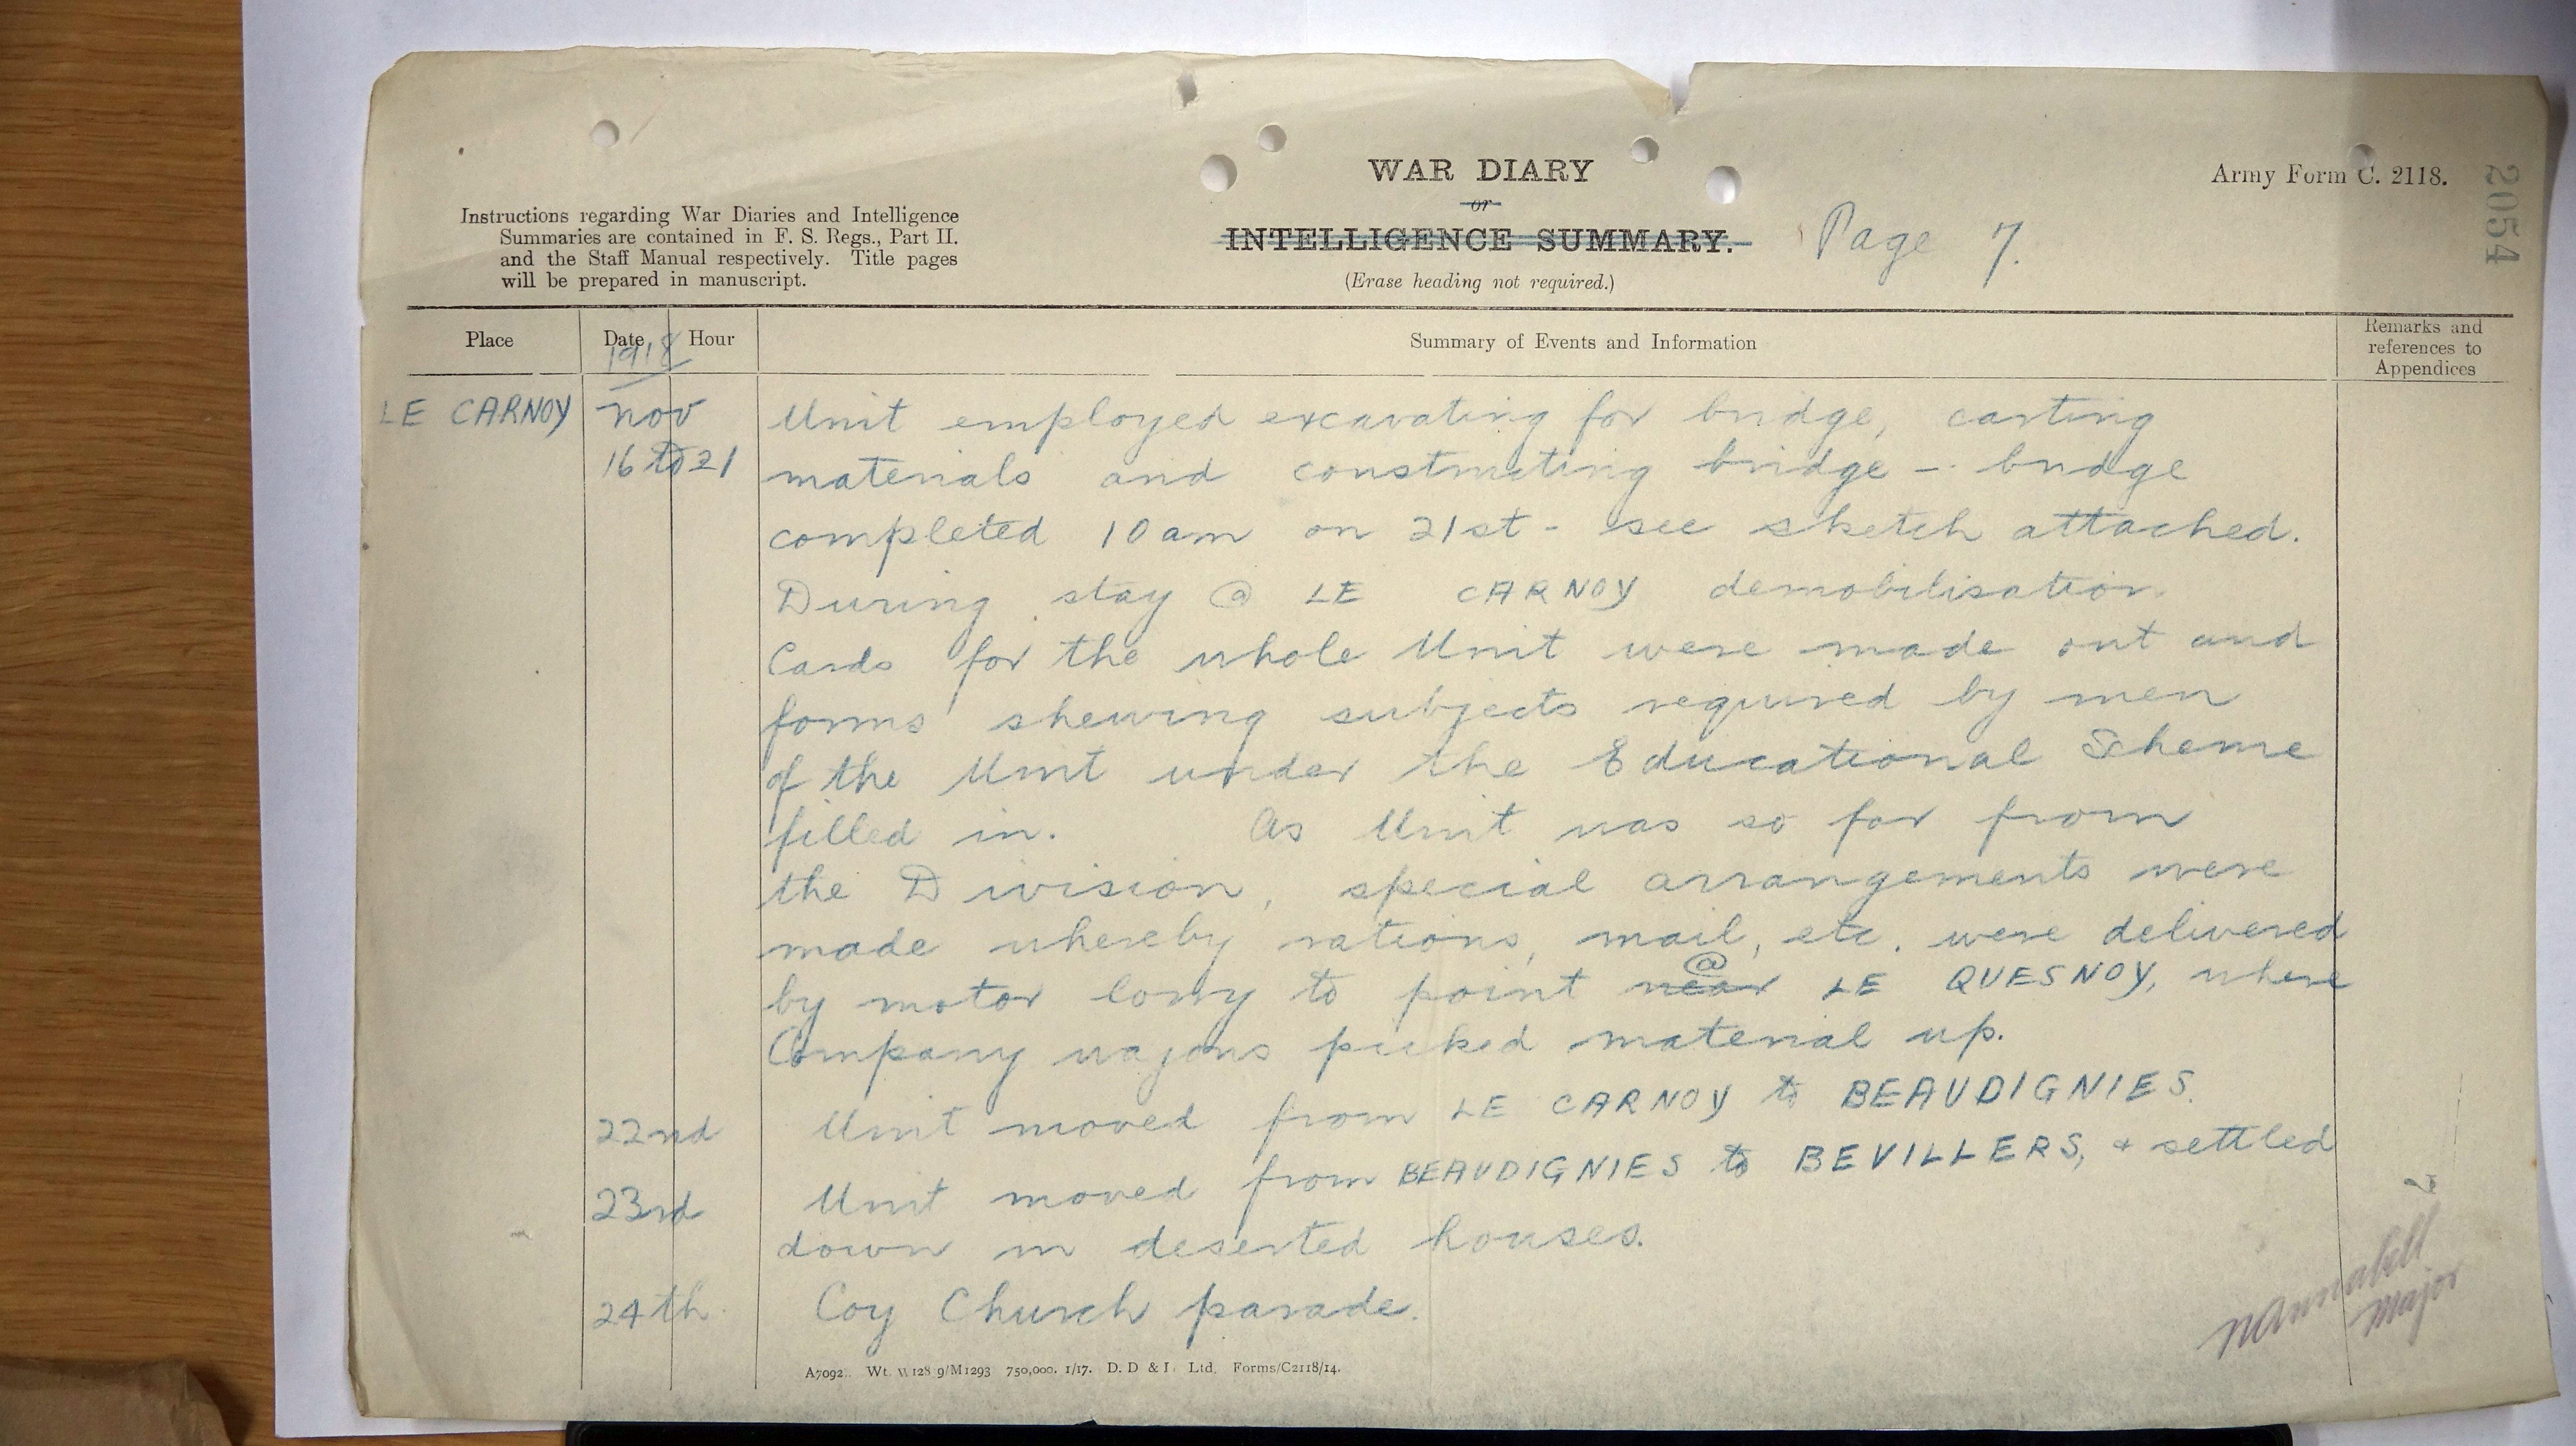 WAR DIARY
or
INTELLIGENCE SUMMARY.
(Erase heading not required.)
Page 7.
Army Form C. 2118.
2054
Instructions regarding War Diaries and Intelligence
Summaries are contained in F. S. Regs., Part II.
and the Staff Manual respectively. Title pages
will be prepared in manuscript.
Place
Date
Hour
Summary of Events and Information
Remarks and
references to
Appendices
1918
LE CARNOY
Nov
16 to 21
Unit employed excavating for bridge, carting
materials and constructing bridge - bridge
completed 10 am on 21st - see sketch attached.
During stay @ LE CARNOY demobilisation
Cards for the whole Unit were made out and
forms shewing subjects required by men
of the Unit under the Educational Scheme
filled in. As Unit was so far from
the Division, special arrangements were
made whereby rations, mail, etc. were delivered
by motor lorry to point near @ LE QUESNOY, where
Company wagons picked material up.
22nd Unit moved from LE CARNOY to BEAUDIGNIES.
23rd Unit moved from BEAUDIGNIES to BEVILLERS, & settled
down in deserted houses.
24th Coy Church parade.
7
NAnnabell
Major
750,000. 1/17. D. D & L Ltd. Forms/C2118/14.